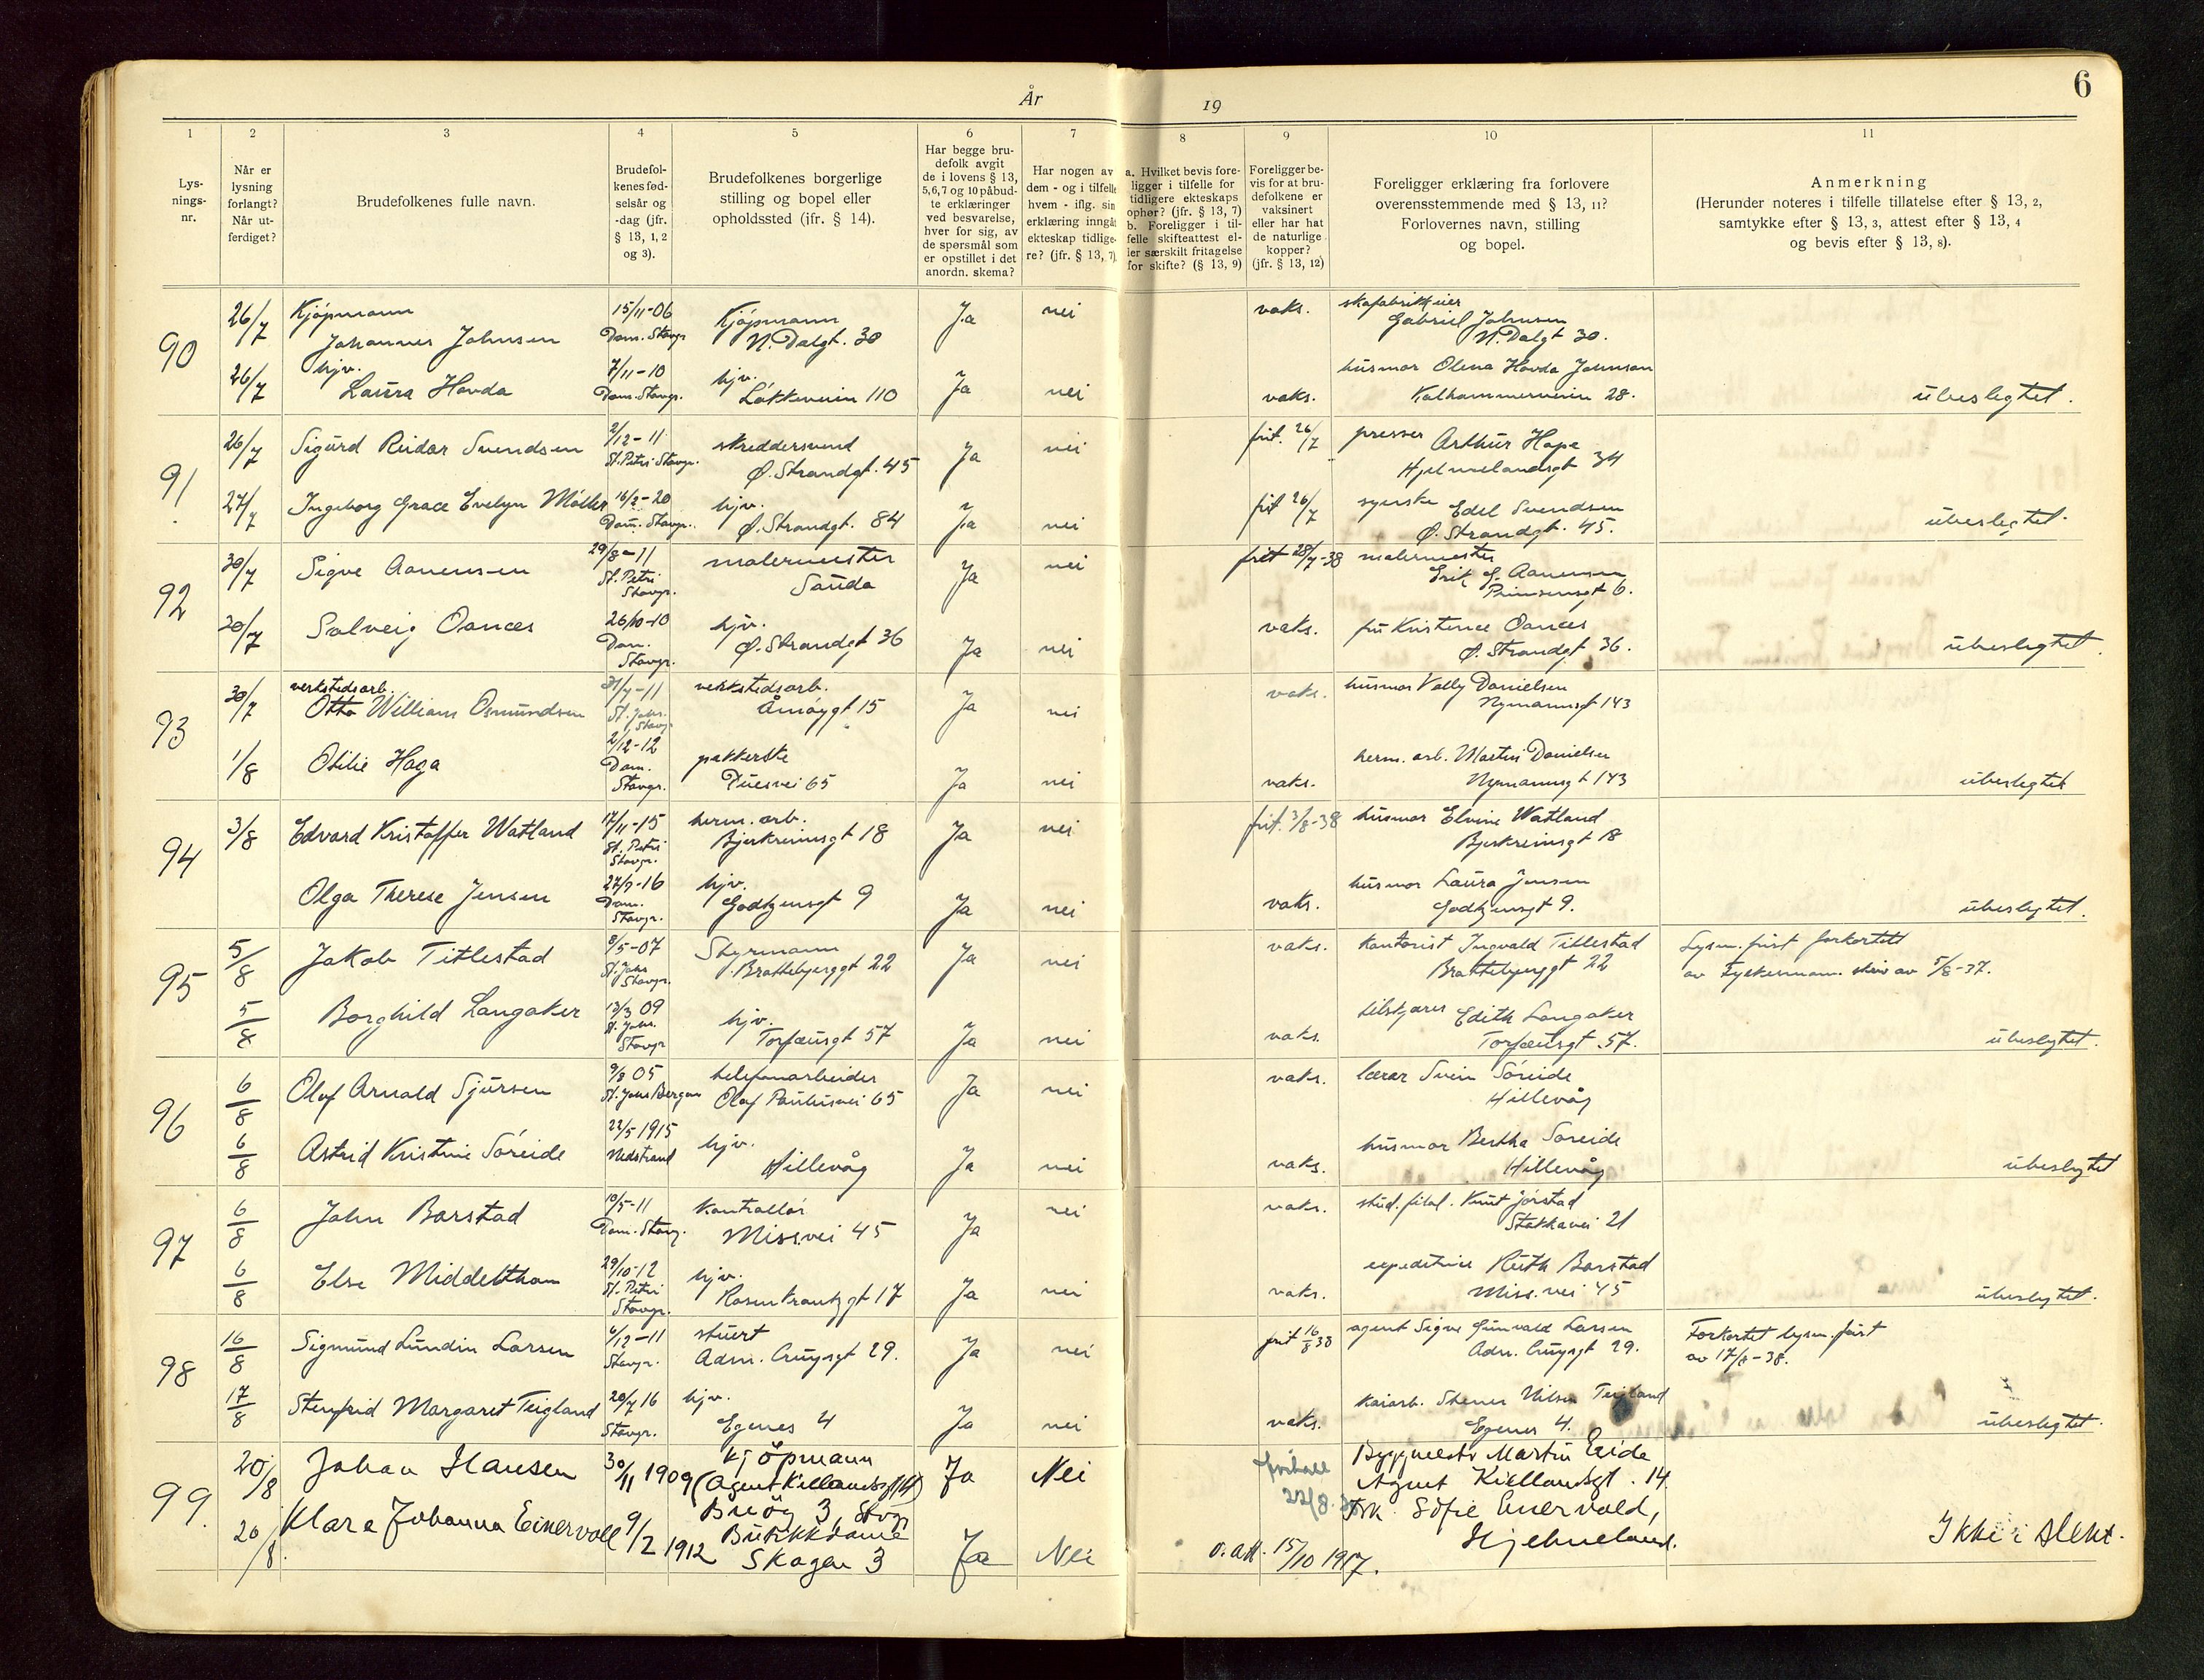 År
19
6
1
Lys-
nings-
nr.
2
Når er
lysning
forlangt?
Når ut-
ferdiget?
3
Brudefolkenes fulle navn.
4
Brudefol-
kenes fød-
selsår og
-dag (jfr.
§ 13, 1, 2
og 3).
5
Brudefolkenes borgerlige
stilling og bopel eller
opholdssted (jfr. § 14).
6
Har begge bru-
defolk avgit
de i lovens § 13,
5,6,7 og 10 påbud-
te erklæringer
ved besvarelse,
hver for sig, av
de spørsmål som
er opstillet i det
anordn. skema?
7
Har nogen av
dem - og i tilfelle
hvem - iflg. sin
erklæring inngåt
ekteskap tidlige-
re? (jfr. § 13, 7)
8
a. Hvilket bevis fore-
ligger i tilfelle for
tidligere ekteskaps
ophør? (jfr. § 13, 7)
b. Foreligger i til-
felle skifteattest el-
ler særskilt fritagelse
for skifte? (§ 13, 9)
9
Foreligger be-
vis for at bru-
defolkene er
vaksinert
eller har hat
de naturlige
kopper?
(jfr. § 13, 12)
10
Foreligger erklæring fra forlovere
overensstemmende med § 13, 11?
Forlovernes navn, stilling
og bopel.
11
Anmerkning
(Herunder noteres i tilfelle tillatelse efter § 13, 2,
samtykke efter § 13, 3, attest efter § 13, 4
og bevis efter § 13, 8).
90
26/7 Kjøpmann Johannes Johnsen 15/11-06 Dom. Stavgr Kjøpmann N. Dalgt. 30 Ja nei vaks. skofabrikkeier Gabriel Johnsen N. Dalgt 30.
26/7 hjv. Laura Hovda 7/11-10 Dom. Stavgr. hjv. Løkkeveien 110 Ja nei vaks. husmor Olena Hovda Johnsen Kalhammerveien 28. ubeslegtet.
91
26/7 Sigurd Reidar Svendsen 2/12-11 St. Petri Stavgr. skreddersvend Ø. Strandgt. 45 Ja nei frit. 26/7 presser Arthur Hope Hjelmelandsgt 34
27/7 Ingeborg Grace Evelyn Møller 16/2-20 Dom. Stavgr. hjv. Ø. Strandgt. 84 Ja nei frit 26/7 syerske Edel Svendsen Ø. Strandgt. 45. ubeslegtet.
92
30/7 Sigve Aanensen 29/8-11 St. Petri Stavgr. malermester Sauda Ja nei frit 28/7-38 malermester Erik G. Aanensen Prinsensgt 6.
30/7 Solveig Oanæs 26/10-10 Dom. Stavgr. hjv. Ø. Strandgt 36 Ja nei vaks. fru Kristence Oanæs Ø. Strandgt 36. ubeslegtet.
93
30/7 verkstedsarb. Otto William Osmundsen 31/7-11 St. Johs. Stavgr verkstedsarb. Åmøygt 15 Ja nei vaks. husmor Vally Danielsen Nymannsgt 143
1/8 Otilie Haga 2/12-12 Dom. Stavgr. pakkerske Duesvei 65 Ja nei vaks. herm. arb. Martin Danielsen Nymannsgt 143 ubeslegtet
94
3/8 Edvard Kristoffer Watland 17/11-15 St. Petri Stavgr. herm. arb. Bjerkreimsgt 18 Ja nei frit. 3/8-38 husmor Elvine Watland Bjerkreimsgt 18
Olga Therese Jensen 27/9-16 Dom. Stavgr. hjv. Godtzensgt 9 Ja nei vaks. husmor Laura Jensen Godtzensgt 9. ubeslegtet.
95
5/8 Jakob Titlestad 8/5-07 St. Johs Stavgr. Styrmann Brattebjerggt 22 Ja nei vaks. kontorist Ingvald Titlestad Brattebjerggt 22 Lysn. frist forkortet av Fylkesmann. skriv av 5/8-37.
5/8 Borghild Langaker 13/3 09 St. Johs. Stavgr hjv. Torfæusgt 57 Ja nei vaks. Edith Langaker Torfæusgt. 57. ubeslegtet.
96
6/8 Olof Arnold Sjursen 9/3 05 St. Johs Bergen telefonarbeider Olaf Paulusvei 65 Ja nei vaks. lærer Svein Søreide Hillevåg
6/8 Astrid Kristine Søreide 22/5 1915 Nedstrand hjv. Hillevåg Ja nei vaks. husmor Bertha Søreide Hillevåg ubeslegtet
97
6/8 John Borstad 10/5-11 Dom. Stavgr. kontrollør Miss.vei 45 Ja nei vaks. stud. filol. Knut Jørstad Stokkavei 21
6/8 Else Middelthon 29/10-12 St. Petri Stavgr. hjv. Rosenkrantzgt 17 Ja nei vaks. expeditrice Ruth Borstad Miss. vei 45 ubeslegtet.
98
16/8 Sigmund Lundin Larsen 6/12-11 Stavgr. stuert Adm. Cruysgt 29. Ja nei frit 16/8 38 agent Sigve Gunvald Larsen Adm. Cruysgt 29. Forkortet lysn. frist av 17/8-38.
17/8 Stenfrid Margaret Teigland 20/7 16 Stavgr. hjv. Egenes 4 Ja nei vaks. kaiarb. Stener Nilsen Teigland Egenes 4. ubeslegtet.
99.
20/8 Johan Hansen 30/11 1909 Kjöpmann (Agent Kiellandsgt 14) Ja Nei 22/8. Byggmester Martin Eeide Agent Kiellandsgt. 14.
20/8. Klara Johanna Einervoll 9/2 1912 Butikkdame Skagen 3 Ja Nei o. att. 15/10 1917. Frk. Sofie Einervold, Hjelmeland. Ikke i slekt.